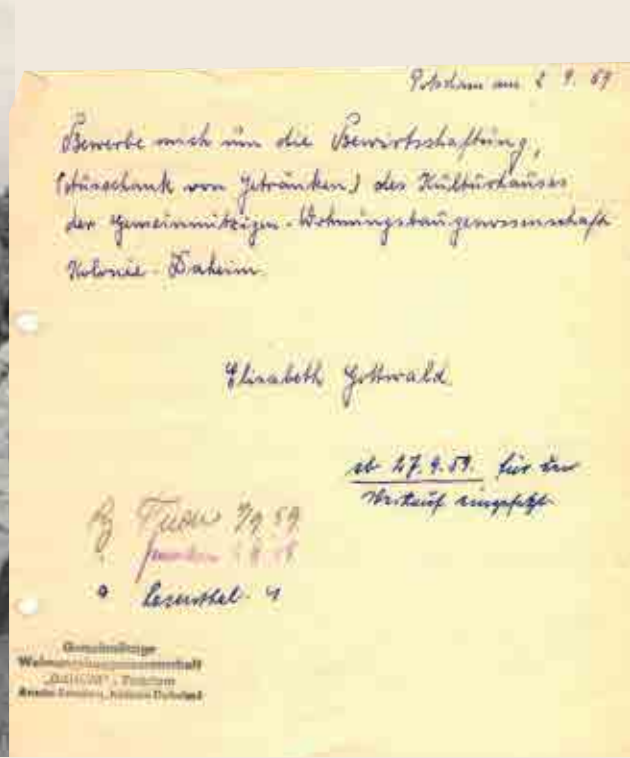 Potsdam am 2 9. 59
Bewerbe mich um die Bewirtschaftung,
(Ausschank von Getränken) des Kulturhauses
der Gemeinnützigen-Wohnungsbaugenossenschaft
Kolonie-Daheim.
Elisabeth Gottwald
ab 27.9.59. für den
Verkauf eingesetzt.
7/9 59
Gemeinnützige
"DAHEIM", Potsdam